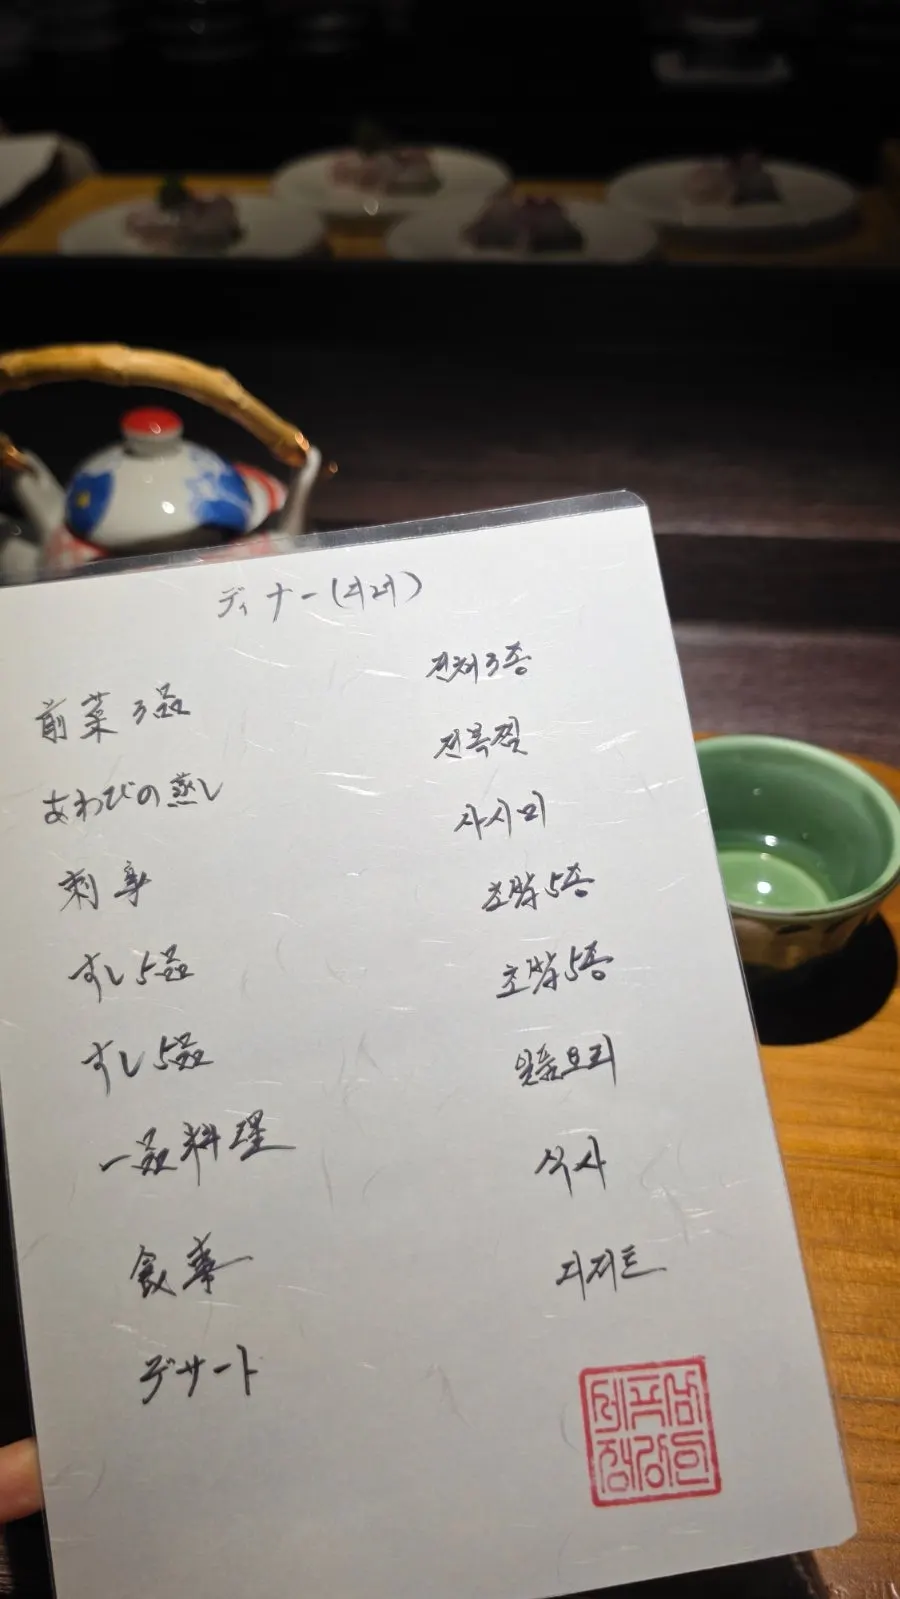 ディナー(디너)
前菜 3品 전채 3종
あわびの蒸し 전복찜
刺身 사시미
すし 5品 초밥 5종
すし 5品 초밥 5종
一品料理 일품요리
食事 식사
デザート 디저트